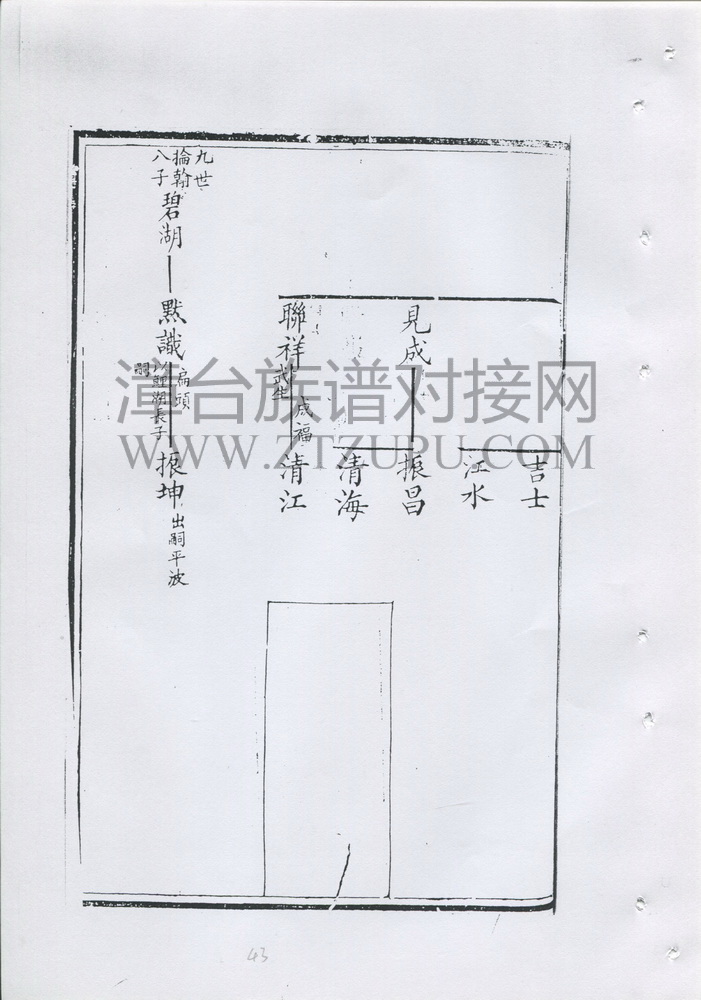 吉士
江水
見成
振昌
清海
聯祥
武生
成福
清江
九世
掄翰
八子
碧湖
默識
扁頭
以鯉湖長子
嗣
振坤
出嗣平波
漳台族谱对接网
WWW.ZTZUPU.COM
43